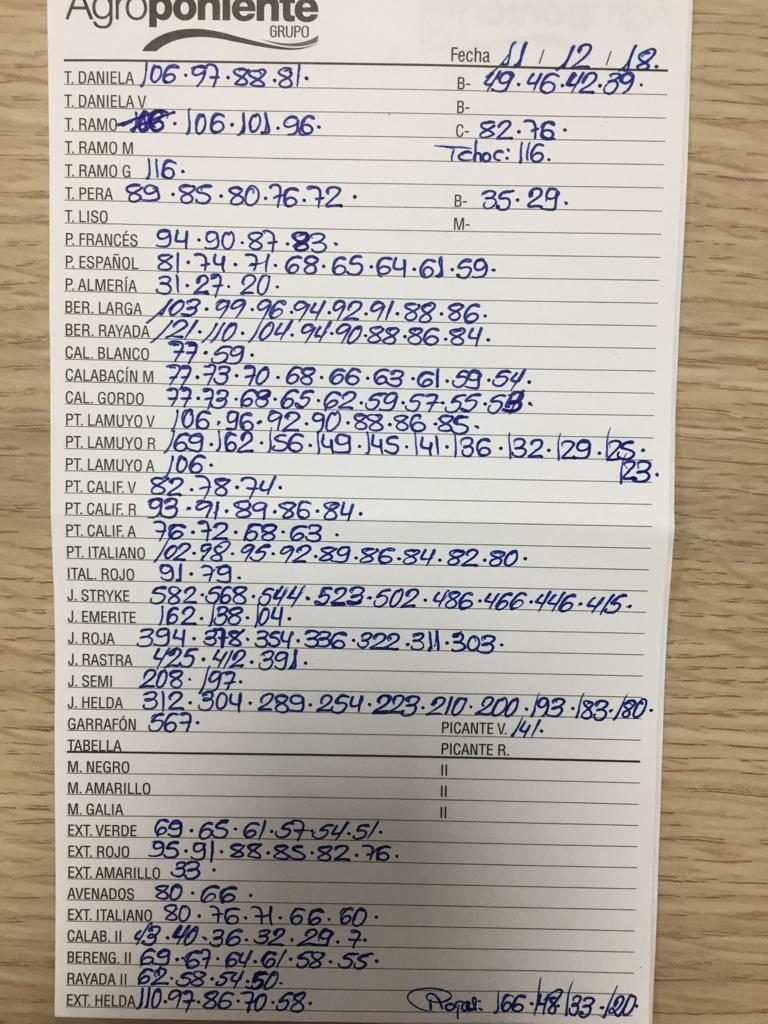 Agroponiente
GRUPO
Fecha 11 / 12 / 18.
T. DANIELA 106·97·88·81· B- 49·46·42·39·
T. DANIELA V B-
T. RAMO 106·101·96· C- 82·76·
T. RAMO M Tchoc: 116.
T. RAMO G 116·
T. PERA 89·85·80·76·72· B- 35·29·
T. LISO M-
P. FRANCÉS 94·90·87·83·
P. ESPAÑOL 81·74·71·68·65·64·61·59·
P. ALMERÍA 31·27·20·
BER. LARGA 103·99·96·94·92·91·88·86·
BER. RAYADA 121·110·104·94·90·88·86·84·
CAL. BLANCO 77·59·
CALABACÍN M 77·73·70·68·66·63·61·59·54·
CAL. GORDO 77·73·68·65·62·59·57·55·53·
PT. LAMUYO V 106·96·92·90·88·86·85·
PT. LAMUYO R 169·162·156·149·145·141·136·132·129·125·
123·
PT. LAMUYO A 106·
PT. CALIF. V 82·78·74·
PT. CALIF. R 93·91·89·86·84·
PT. CALIF. A 76·72·68·63·
PT. ITALIANO 102·98·95·92·89·86·84·82·80·
ITAL. ROJO 91·79·
J. STRYKE 582·568·544·523·502·486·466·446·415·
J. EMERITE 162·138·104·
J. ROJA 394·378·354·336·322·311·303·
J. RASTRA 425·412·391·
J. SEMI 208·197·
J. HELDA 312·304·289·254·223·210·200·193·183·180·
GARRAFÓN 567· PICANTE V. 141·
TABELLA PICANTE R.
M. NEGRO II
M. AMARILLO II
M. GALIA II
EXT. VERDE 69·65·61·57·54·51·
EXT. ROJO 95·91·88·85·82·76·
EXT. AMARILLO 33·
AVENADOS 80·66·
EXT. ITALIANO 80·76·71·66·60·
CALAB. II 43·40·36·32·29·7·
BERENG. II 69·67·64·61·58·55·
RAYADA II 62·58·54·50·
EXT. HELDA 110·97·86·70·58· Rojas: 166·148·133·120·